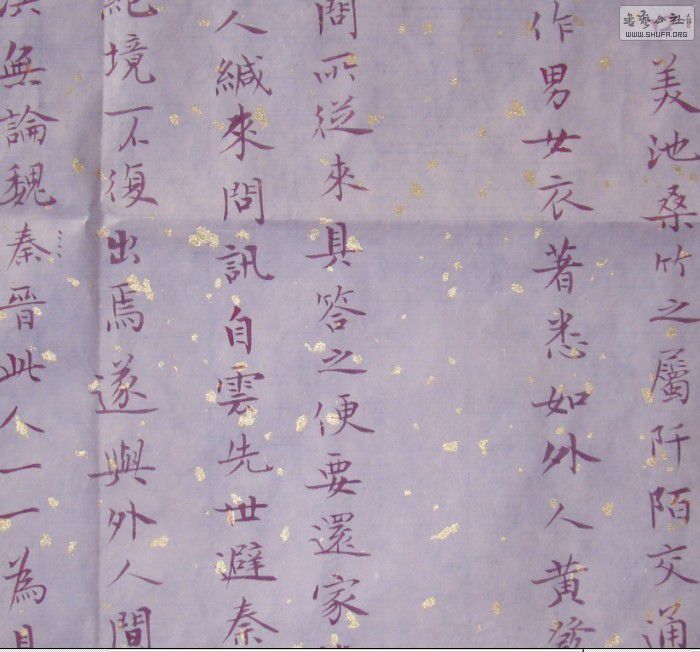 美池桑竹之屬阡陌交通
作男女衣著悉如外人黃發
問所從來具答之便要還家
人緘來問訊自雲先世避秦
絕境不復出焉遂與外人間
無論魏秦晉此人一一為具
书艺公社
WWW.SHUFA.ORG